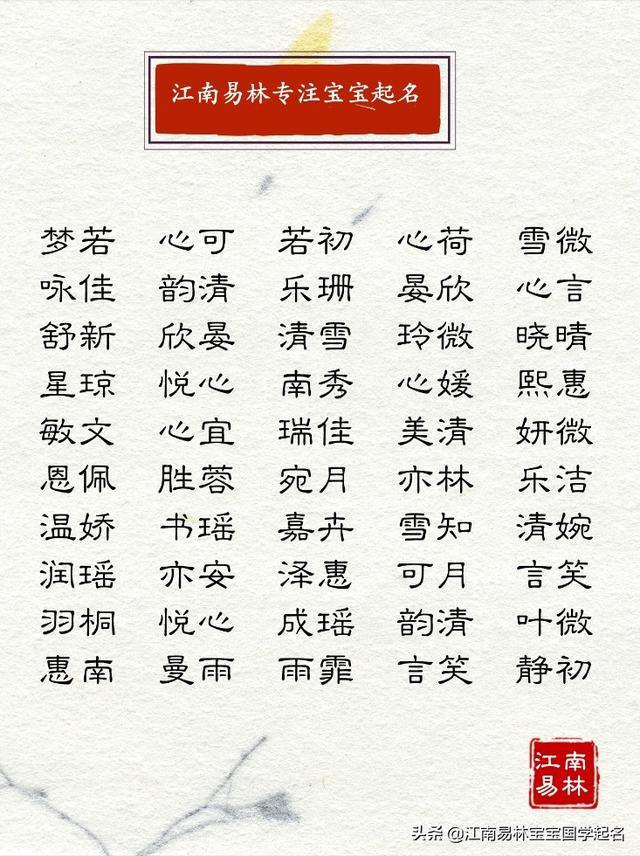 江南易林专注宝宝起名
梦若 心可 若初 心荷 雪微
咏佳 韵清 乐珊 晏欣 心言
舒新 欣晏 清雪 玲微 晓晴
星琼 悦心 南秀 心媛 熙惠
敏文 心宜 瑞佳 美清 妍微
恩佩 胜蓉 宛月 亦林 乐洁
温娇 书瑶 嘉卉 雪知 清婉
润瑶 亦安 泽惠 可月 言笑
羽桐 悦心 成瑶 韵清 叶微
惠南 曼雨 雨霏 言笑 静初
江南
易林
头条 @江南易林宝宝国学起名